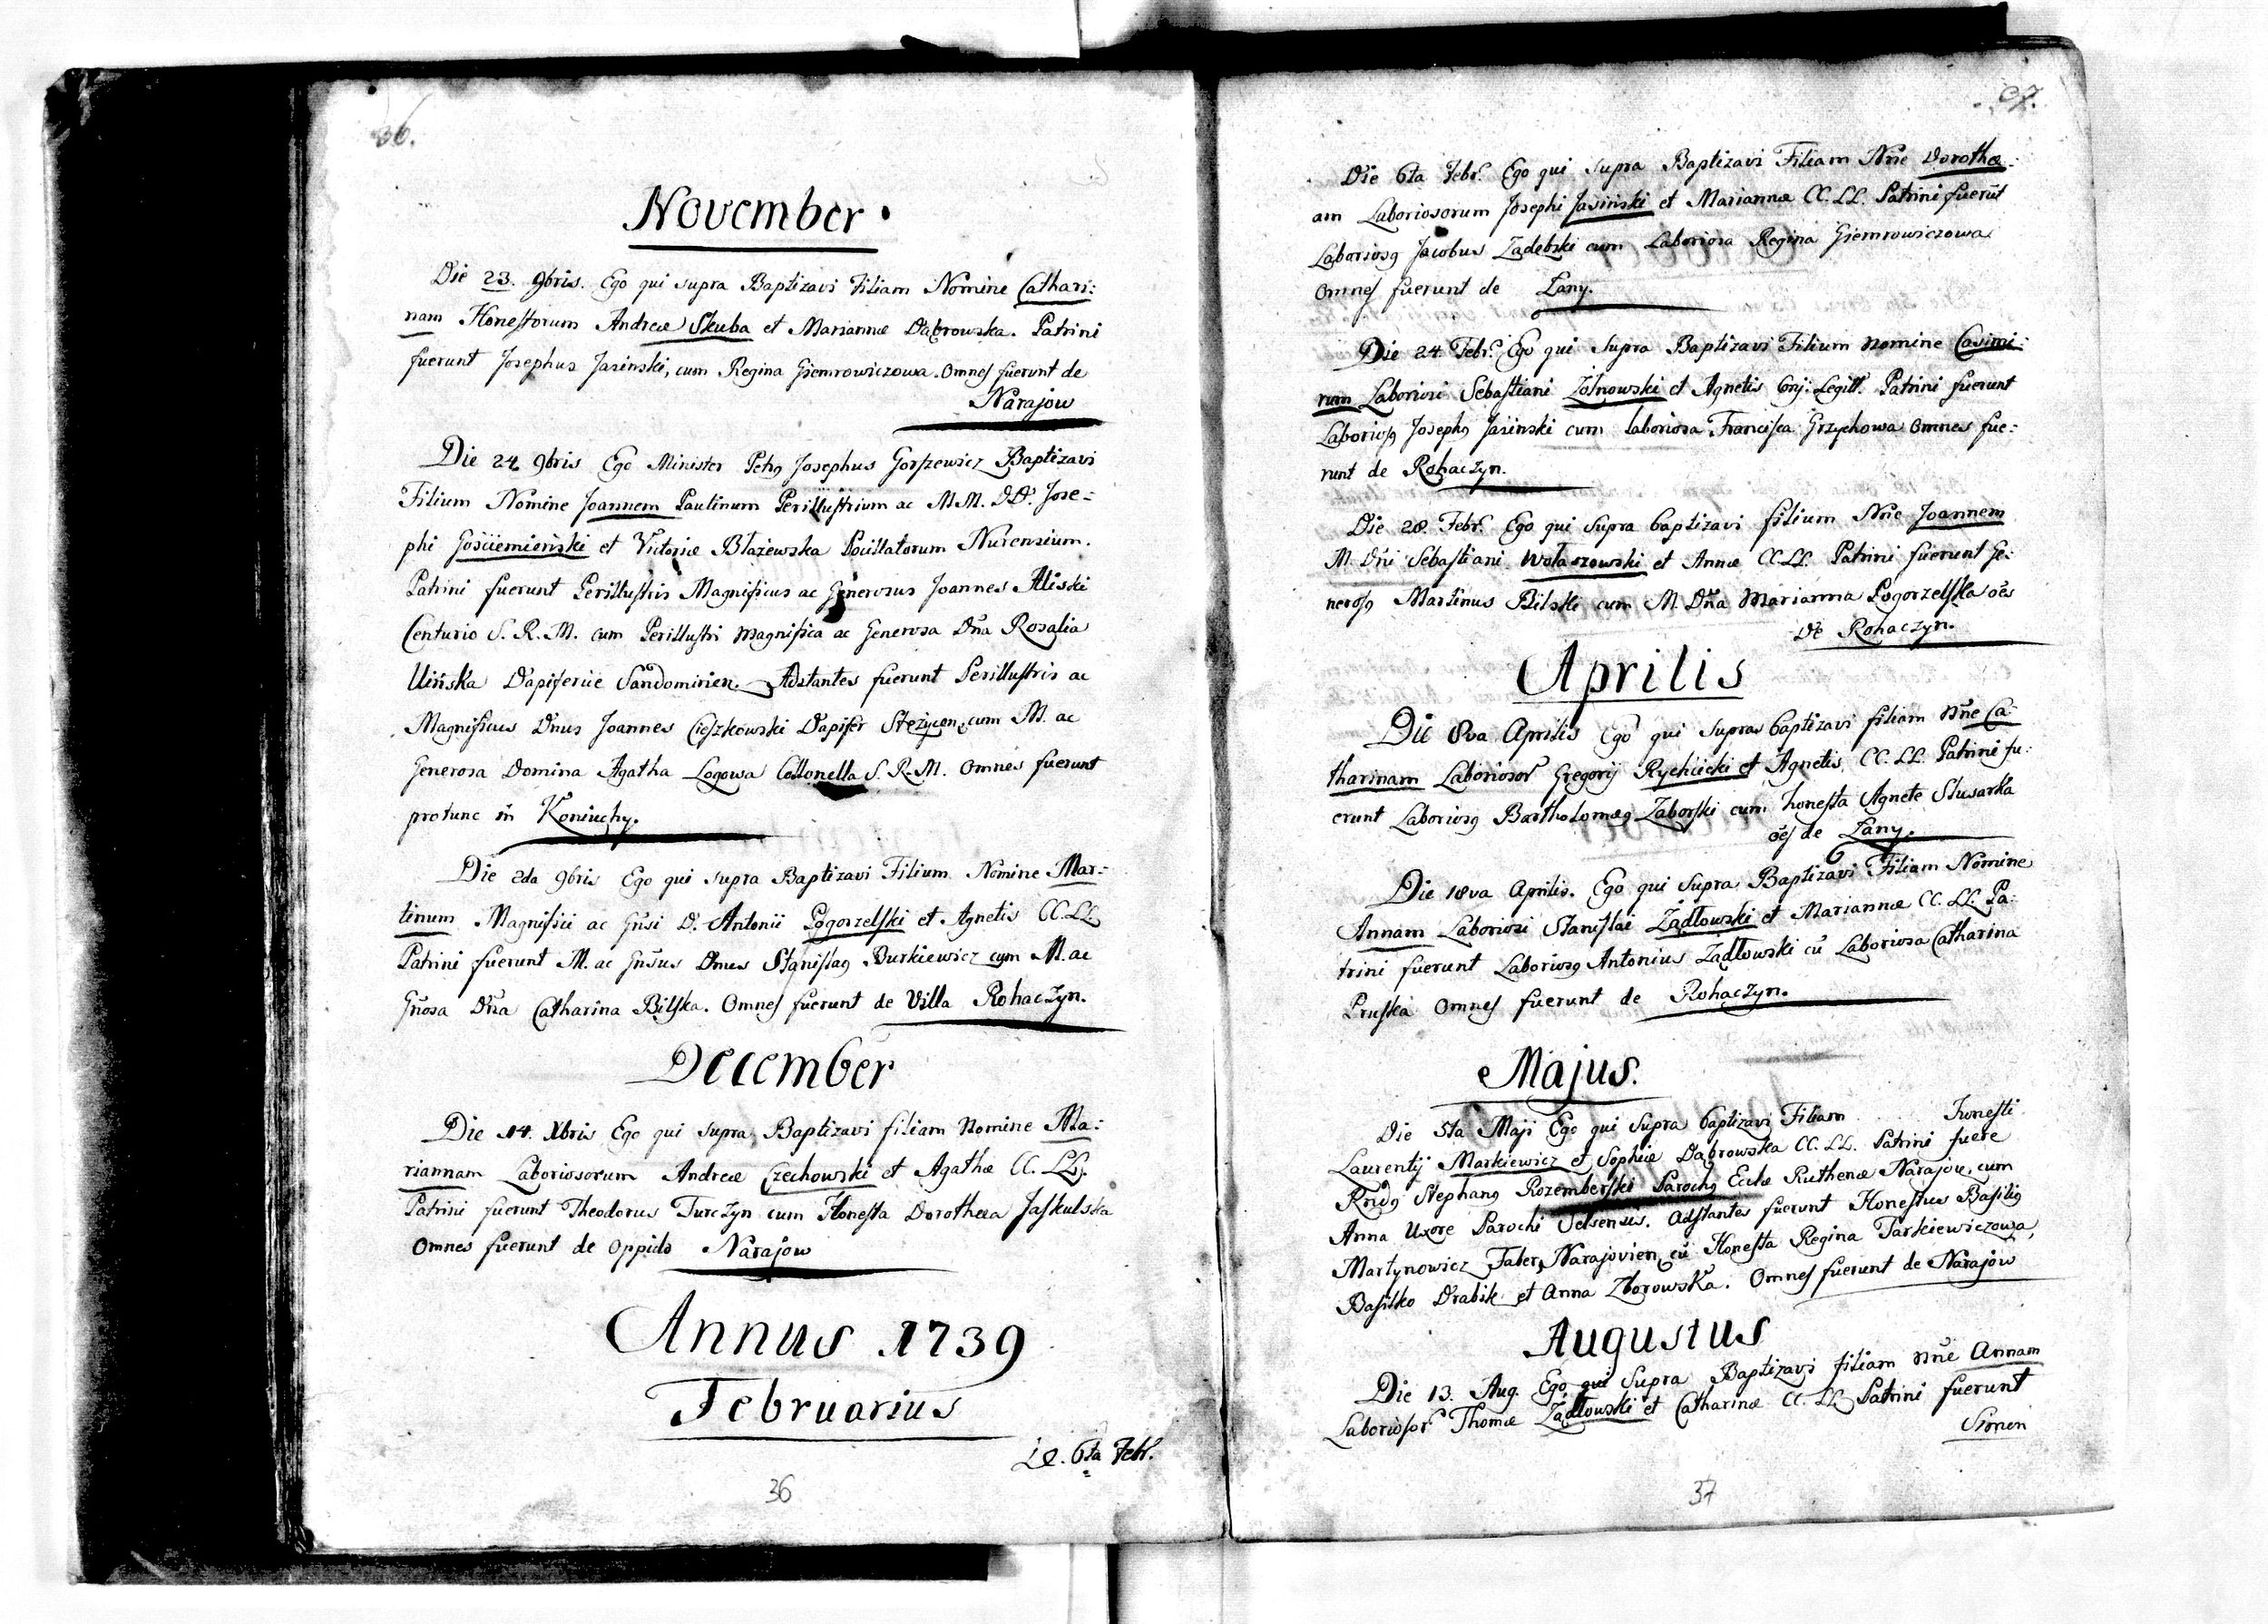 36.
November.
Die 23. 9bris. Ego qui supra Baptizavi Filiam Nomine Cathari:
nam Honestorum Andreæ Skuba et Mariannæ Dąbrowska. Patrini
fuerunt Josephus Jasinski, cum Regina Giemrowiczowa. Omnes fuerunt de
Narajow
Die 24 9bris Ego Minister Petrg Josephus Gorszewicz Baptizavi
Filium Nomine Joannem Paulinum Perillustrium ac M.M. D.D. Jose=
phi Gosciiemieński et Victoriæ Błażewska Pocillatorum Nurensium.
Patrini fuerunt Perillustris Magnificus ac Generosus Joannes Aliski
Centurio S. R. M. cum Perillustri Magnifica ac Generosa Dña Rosalia
Uińska Dapiferiæ Sandomirien. Adstantes fuerunt Perillustris ac
Magnificus Dnus Joannes Cieszkowski Dapifer Stężycen. cum M. ac
Generosa Domina Agatha Logowa Collonella S. R. M. Omnes fuerunt
protunc in Koniuchy.
Die 2da 9bris Ego qui supra Baptizavi Filium Nomine Mar:
tinum Magnifici ac Gnsi D. Antonii Pogorzelski et Agnetis CC. LL.
Patrini fuerunt M. ac Gnsus Dnus Stanislag Burkiewicz cum M. ac
Gnosa Dña Catharina Bilska. Omnes fuerunt de Villa Rohaczyn.
December
Die 14. Xbris Ego qui supra Baptizavi filiam Nomine Ma:
riannam Laboriosorum Andreæ Czechowski et Agathæ CC. LL.
Patrini fuerunt Theodorus Turczyn cum Honesta Dorothea Jaskulska
Omnes fuerunt de Oppido Narajow
Annus 1739
Februarius
6ta Febr.
36
37.
Die 6ta Febr. Ego qui supra Baptizavi Filiam Nñe Dorothe:
am Laboriosorum Josephi Jasiński et Mariannæ CC. LL. Patrini fuerūt
Laboriosg Jacobus Zadębski cum Laboriosa Regina Giemrowiczowa
Omnes fuerunt de Łany.
Die 24 Febr. Ego qui supra Baptizavi Filium nomine Casimi:
rum Laboriosi Sebastiani Zołnowski et Agnetis Cnj: Legitt. Patrini fuerunt
Laboriosg Josephg Jasinski cum laboriosa Francisca Grzychowa Omnes fue:
runt de Rohaczyn.
Die 28. Febr. Ego qui supra baptizavi filium Nñe Joannem
M. Dñi Sebastiani Wołaszowski et Annæ CC. LL. Patrini fuerunt Ge:
nerosg Martinus Bilski cum M. Dña Marianna Pogorzelska oẽs
de Rohaczyn.
Aprilis
Die 8va Aprilis Ego qui supra baptizavi filiam Nñe Ca:
tharinam Laboriosor Gregorij Rychlicki et Agnetis CC. LL. Patrini fu:
erunt Laboriosg Bartholomæg Zaborski cum honesta Agnete Slusarka
oẽs de Łany.
Die 18va Aprilis. Ego qui supra Baptizavi Filiam Nomine
Annam Laboriosi Stanislai Żądłowski et Mariannæ CC. LL. Pa:
trini fuerunt Laboriosg Antonius Żądłowski cū Laboriosa Catharina
Pruska Omnes fuerunt de Rohaczyn.
Majus.
Die 5ta Maji Ego qui supra baptizavi Filiam honesti
Laurentij Markiewicz et Sophiæ Dąbrowska CC. LL. Patrini fuere
Rndg Stephang Rozemberski Parochg Eccłæ Ruthenæ Narajow, cum
Anna Uxore Parochi Olesensis. Adstantes fuerunt Honestus Basilig
Martynowicz Faber Narajovien. cū Honesta Regina Tarkiewiczowa,
Basilko Drabik et Anna Zborowska. Omnes fuerunt de Narajow
Augustus
Die 13. Aug. Ego qui supra Baptizavi filiam nñe Annam
Laboriosor Thomæ Żądłowski et Catharinæ CC. LL. Patrini fuerunt
Simon
37